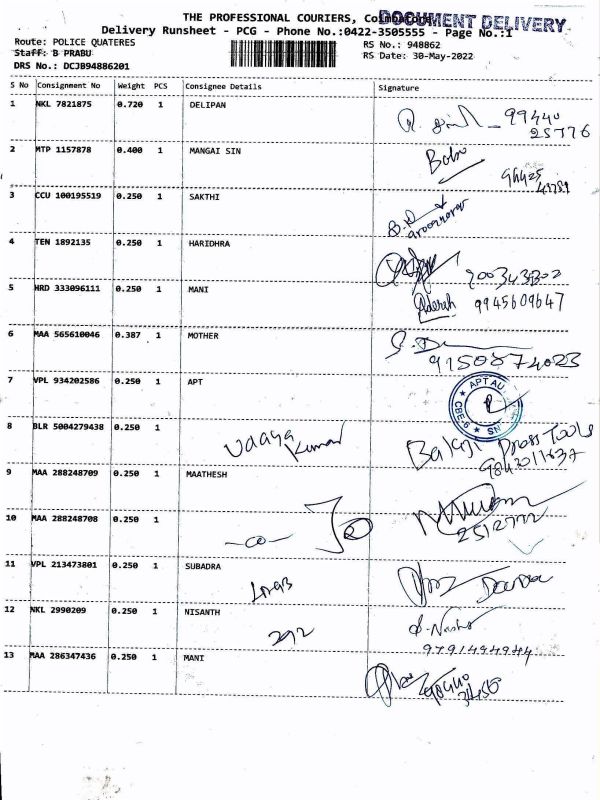 THE PROFESSIONAL COURIERS, Coimbatore
DOCUMENT DELIVERY
Delivery Runsheet - PCG - Phone No.:0422-3505555 - Page No.:1
Route: POLICE QUATERES RS No.: 948862
Staff: B PRABU RS Date: 30-May-2022
DRS No.: DCJB94886201
S No Consignment No Weight PCS Consignee Details Signature
1 NKL 7821875 0.720 1 DELIPAN 99440
25776
2 MTP 1157878 0.400 1 MANGAI SIN Babu
3 CCU 100195519 0.250 1 SAKTHI
4 TEN 1892135 0.250 1 HARIDHRA
5 HRD 333096111 0.250 1 MANI 9945609647
6 MAA 565610046 0.387 1 MOTHER
9150874023
7 VPL 934202586 0.250 1 APT APT AU
CBE-6
8 BLR 5004279438 0.250 1 Kumar Balaji Press Tools
9843011637
9 MAA 288248709 0.250 1 MAATHESH
10 MAA 288248708 0.250 1 -co-
11 VPL 213473801 0.250 1 SUBADRA
12 NKL 2990209 0.250 1 NISANTH
292
9791494944
13 MAA 286347436 0.250 1 MANI